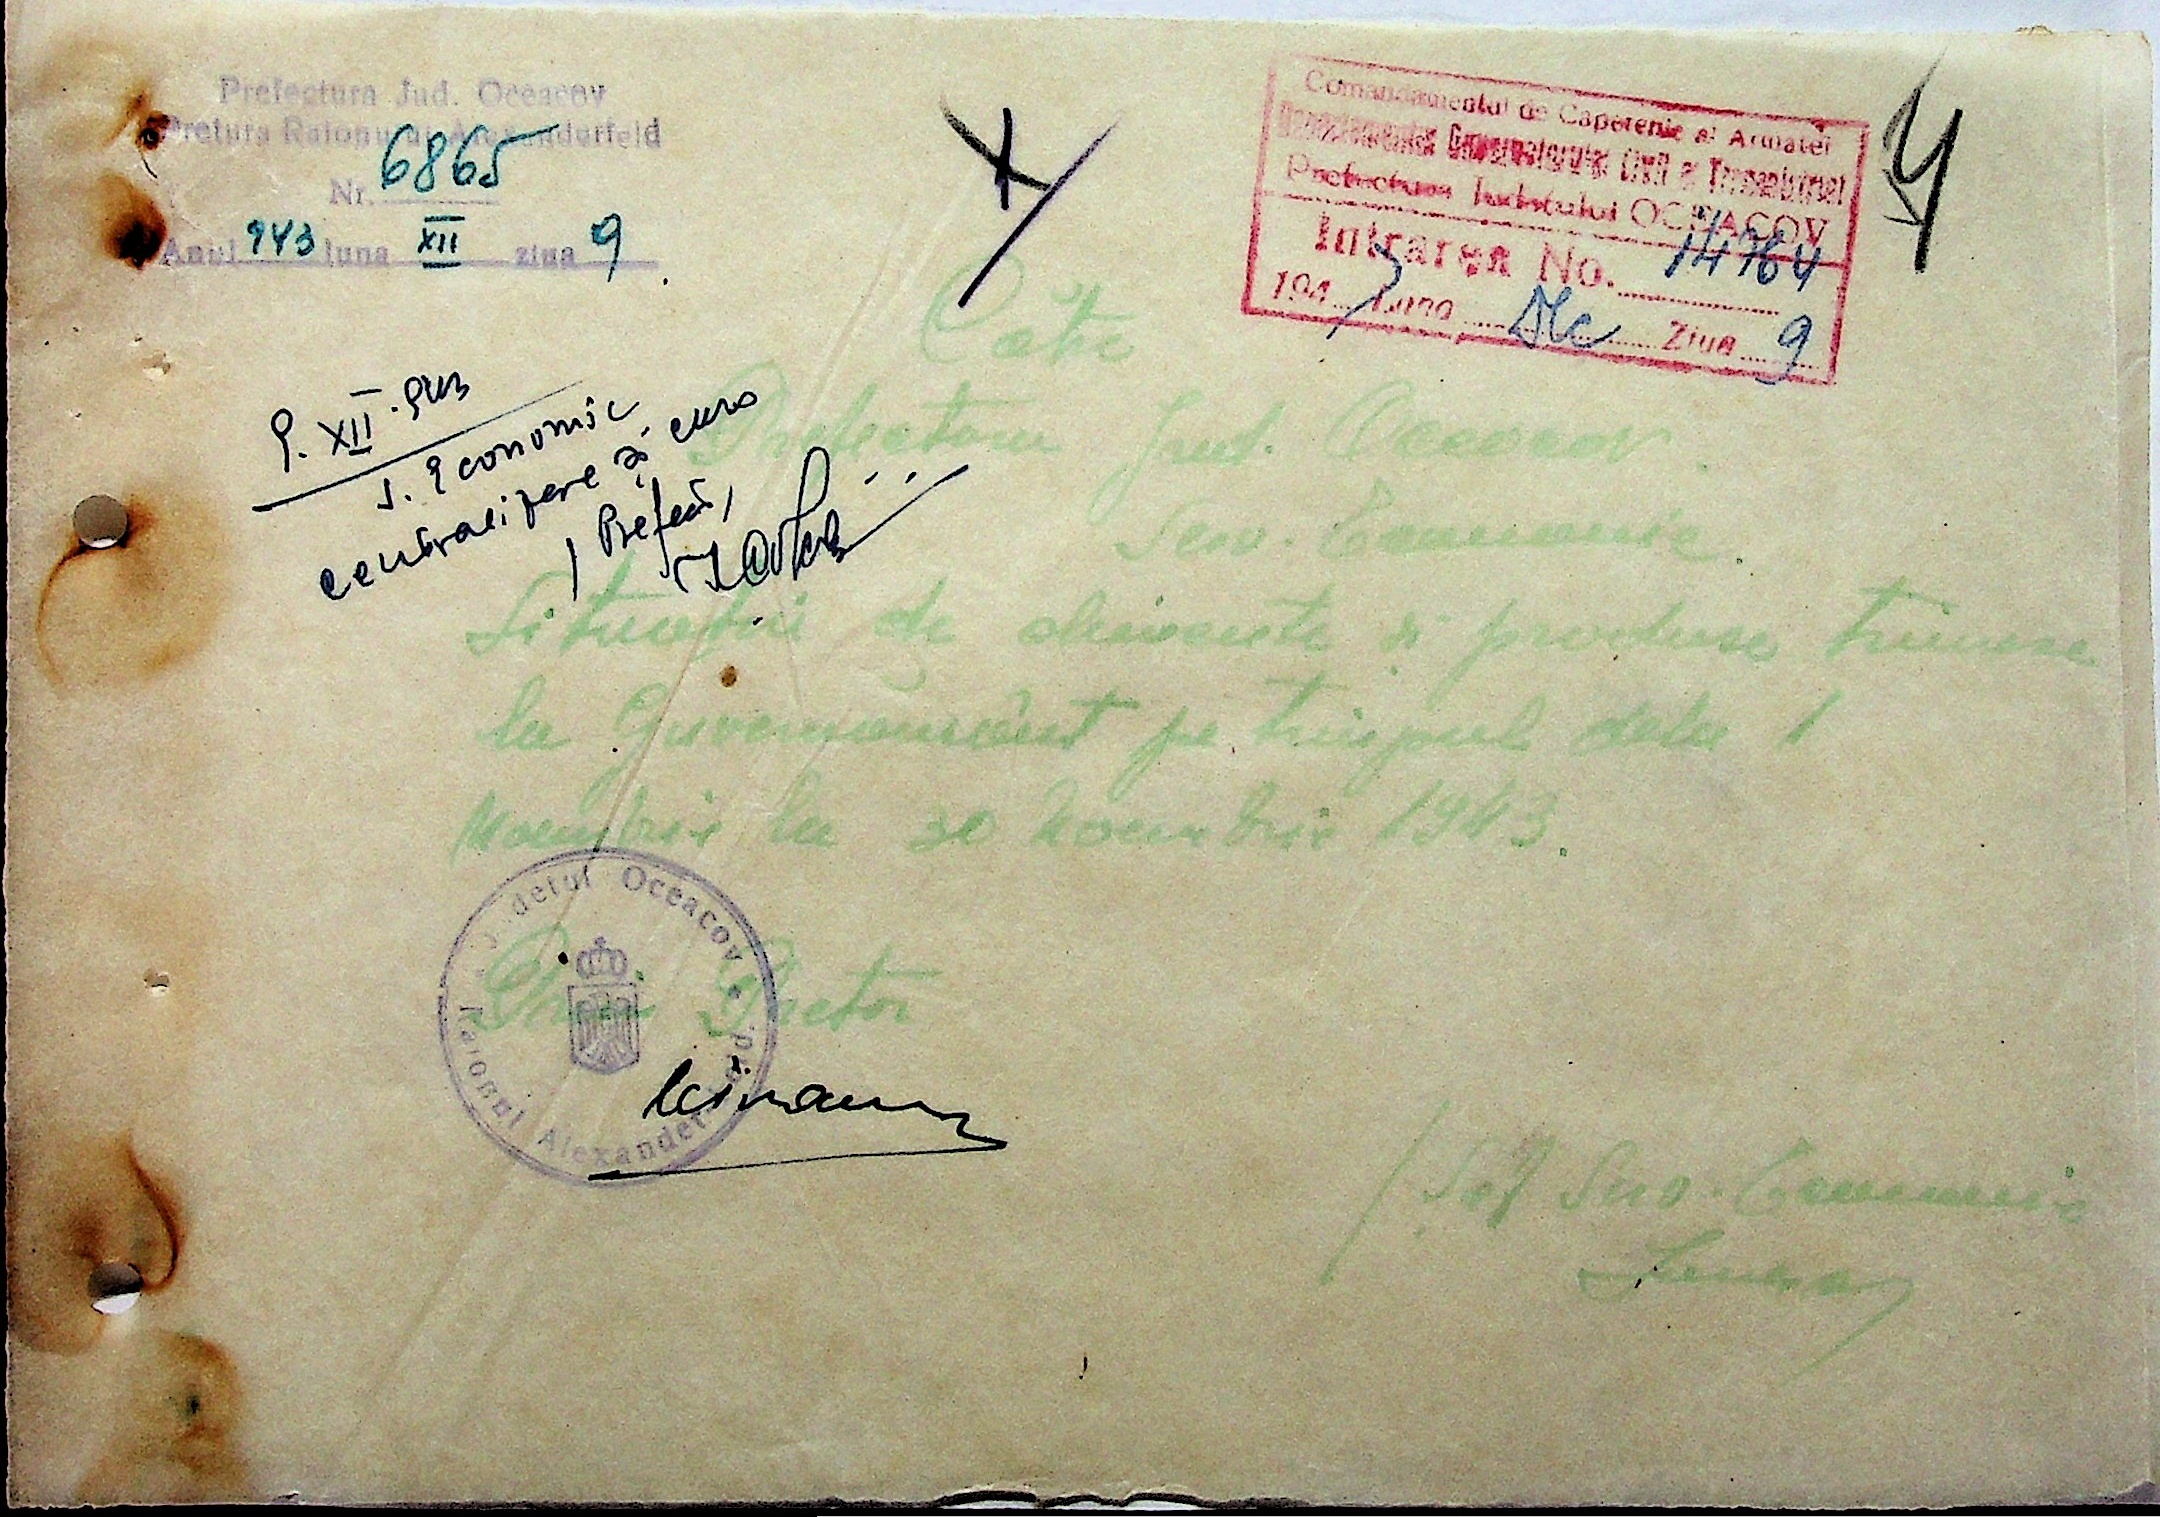 Prefectura Jud. Oceacov
Pretura Raionului Alexanderfeld
Nr. 6865
Anul 943 luna XII ziua 9
Comandamentul de Capetenie al Armatei
Guvernatorul Civil al Transnistriei
Prefectura Judetului OCEACOV
Intrarea No.
194 3 Luna Dec Ziua 9
9. XII. 943
S. Economic
centralizare și
Prefect,
Către
Prefectura Jud. Oceacov.
Serv. Economic.
Situații de alimente și produse trimese
la Guvernământ pe timpul dela 1
Noembrie la 30 Noembrie 1943.
Județul Oceacov
Raionul Alexanderfeld
Prim Pretor
Șef Serv. Economic